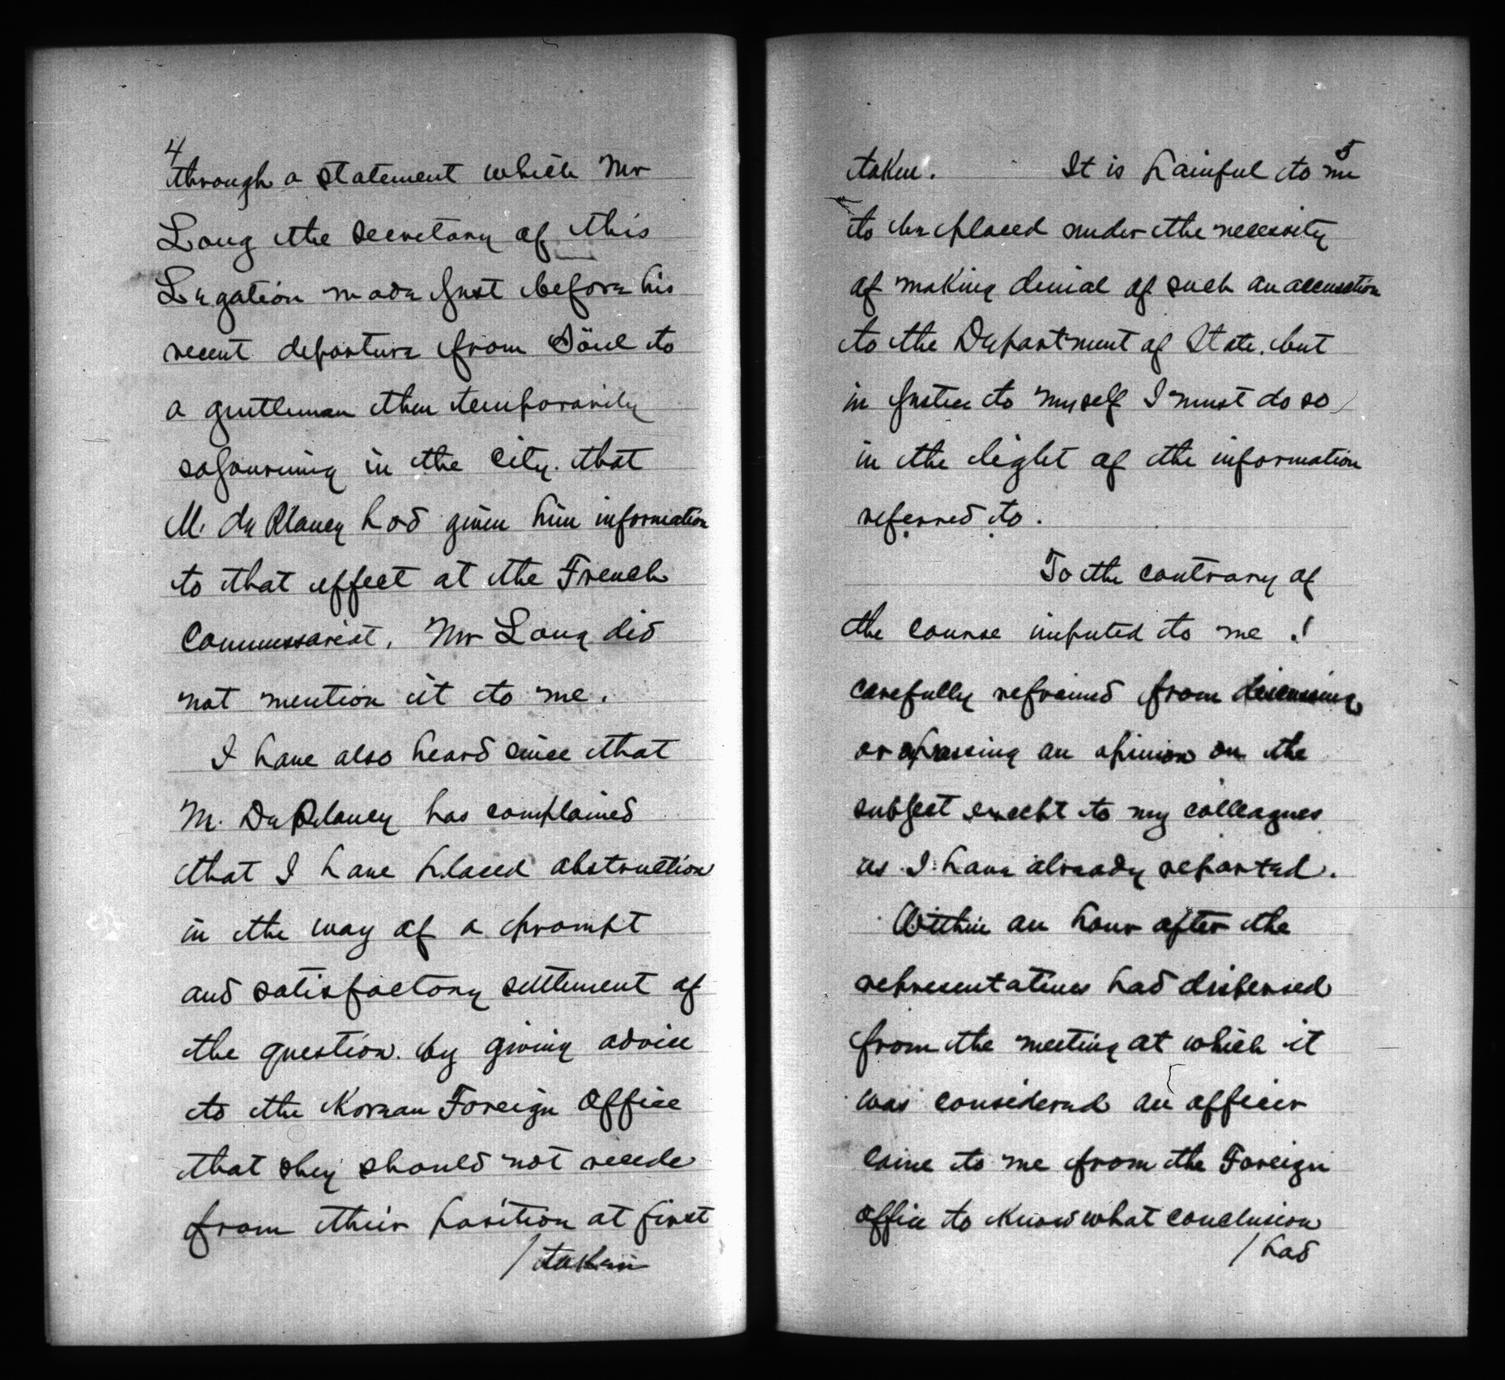 4
through a statement which Mr
Long the secretary of this
Legation made just before his
recent departure from Söul to
a gentleman then temporarily
sojourning in the city. that
M. du Plancy had given him information
to that effect at the French
Commissariat. Mr Long did
not mention it to me.
I have also heard since that
M. Du Plancy has complained
that I have placed obstruction
in the way of a prompt
and satisfactory settlement of
the question. by giving advice
to the Korean Foreign Office
that they should not recede
from their position at first
/ taken
5
taken. It is painful to me
to be placed under the necessity
of making denial of such an accusation
to the Department of State. but
in justice to myself I must do so
in the light of the information
referred to.
To the contrary of
the course imputed to me I
carefully refrained from discussing
or expressing an opinion on the
subject except to my colleagues
as I have already reported.
Within an hour after the
representatives had dispersed
from the meeting at which it
was considered an officer
came to me from the Foreign
office to know what conclusion
/ had